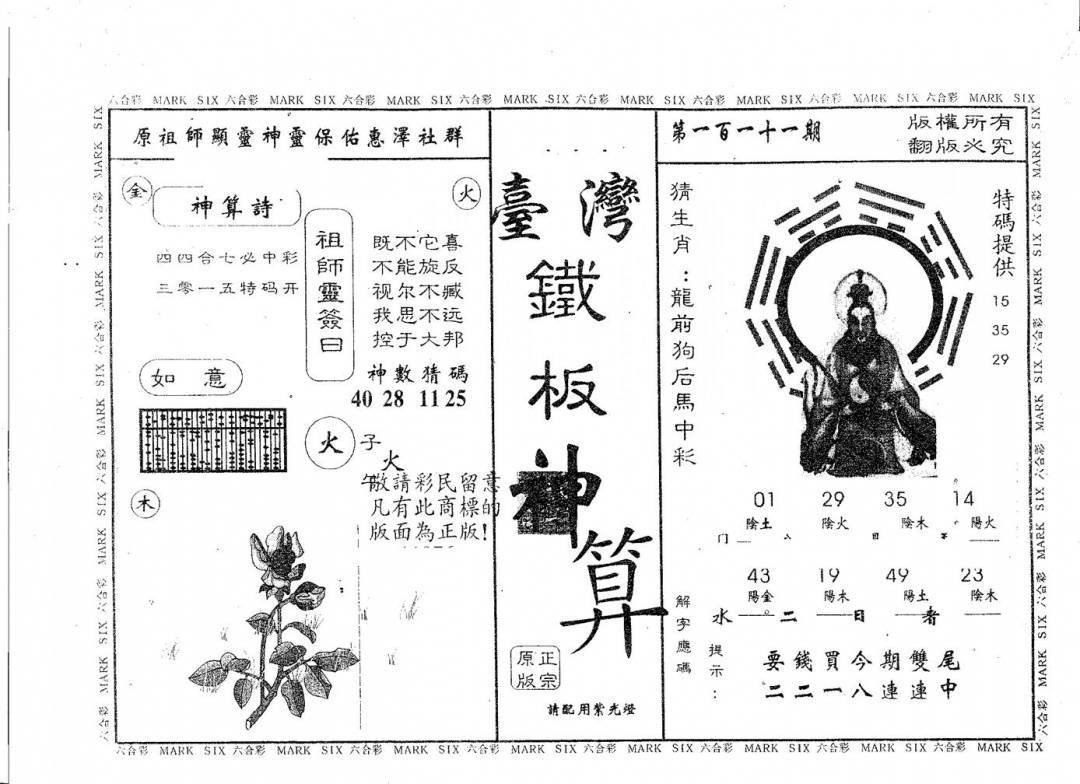 六合彩 MARK SIX 六合彩 MARK SIX 六合彩 MARK SIX 六合彩 MARK SIX 六合彩 MARK SIX 六合彩 MARK SIX 六合彩 MARK SIX 六合彩 MARK SIX
原祖師顯靈神靈保佑惠澤社群
金
神算詩
火
四四合七必中彩
三零一五特码开
祖師靈簽曰
既不它喜
不能旋反
视尔不臧
我思不远
控于大邦
神數猜碼
40 28 11 25
如意
火
子
火
午
敬請彩民留意
凡有此商標的
版面為正版!
木
臺灣
鐵
板
神
算
正宗
原版
請配用紫光燈
第一百一十一期
版權所有
翻版必究
猜生肖:龍前狗后馬中彩
特碼提供
15
35
29
01 29 35 14
陰土 陰火 陰木 陽火
门 日
43 19 49 23
陽金 陽木 陽土 陰木
水 二 日 者
解字應碼
提示:
要錢買今期雙尾
二二一八連連中
六合彩 MARK SIX 六合彩 MARK SIX 六合彩 MARK SIX 六合彩 MARK SIX 六合彩 MARK SIX 六合彩 MARK SIX 六合彩 MARK SIX 六合彩 MARK SIX